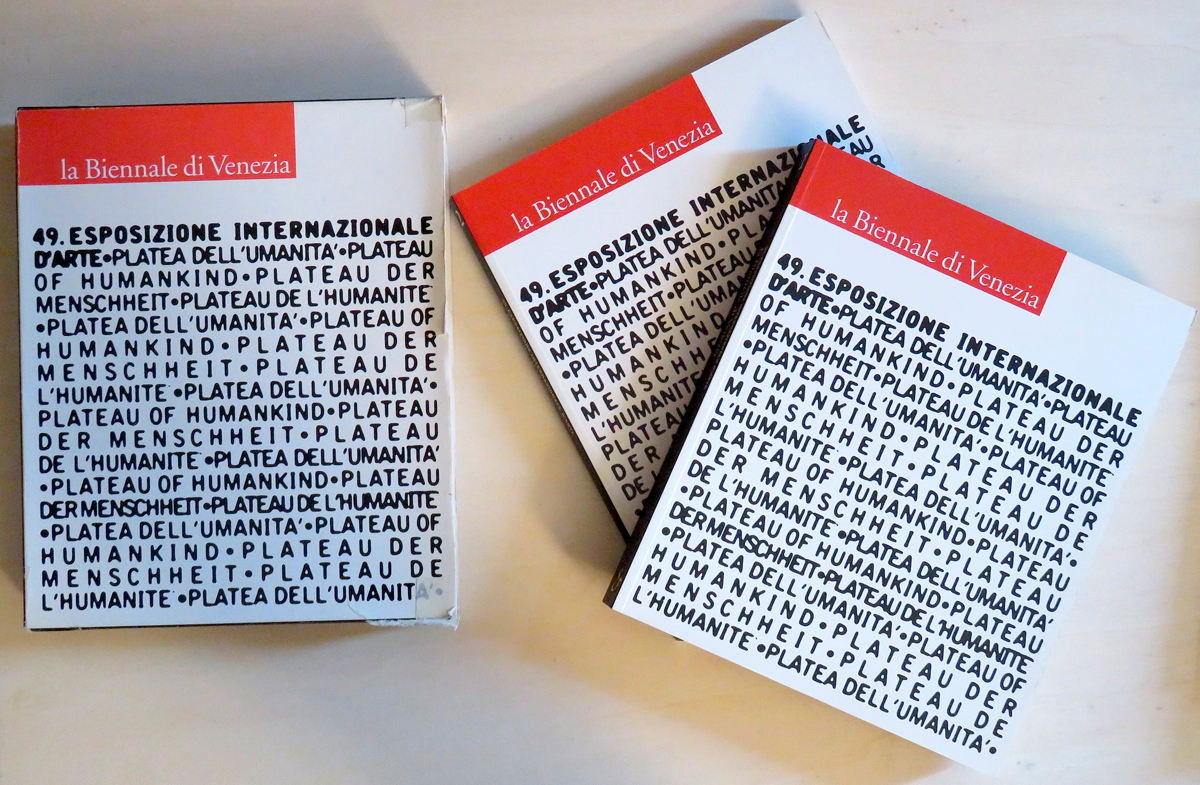 la Biennale di Venezia
49. ESPOSIZIONE INTERNAZIONALE
D'ARTE•PLATEA DELL'UMANITA'•PLATEAU
OF HUMANKIND•PLATEAU DER
MENSCHHEIT•PLATEAU DE L'HUMANITE
•PLATEA DELL'UMANITA'•PLATEAU OF
HUMANKIND•PLATEAU DER
MENSCHHEIT•PLATEAU DE
L'HUMANITE•PLATEA DELL'UMANITA'•
PLATEAU OF HUMANKIND•PLATEAU
DER MENSCHHEIT•PLATEAU
DE L'HUMANITE•PLATEA DELL'UMANITA'
•PLATEAU OF HUMANKIND•PLATEAU
DER MENSCHHEIT•PLATEAU DE L'HUMANITE
•PLATEA DELL'UMANITA'•PLATEAU OF
HUMANKIND•PLATEAU DER
MENSCHHEIT•PLATEAU DE
L'HUMANITE•PLATEA DELL'UMANITA'•
la Biennale di Venezia
49. ESPOSIZIONE INTERNAZIONALE
D'ARTE•PLATEA DELL'UMANITA'
OF HUMANKIND•PLA
MENSCHHEIT•PLATEAU
•PLATEA DELL'UMANI
HUMANKIND
MENSCHH
L'HUMANITE
PLATEAU
DER
DE
la Biennale di Venezia
49. ESPOSIZIONE INTERNAZIONALE
D'ARTE•PLATEA DELL'UMANITA'•PLATEAU
OF HUMANKIND•PLATEAU DER
MENSCHHEIT•PLATEAU DE L'HUMANITE
•PLATEA DELL'UMANITA'•PLATEAU OF
HUMANKIND•PLATEAU DER
MENSCHHEIT•PLATEAU DE
L'HUMANITE•PLATEA DELL'UMANITA'•
PLATEAU OF HUMANKIND•PLATEAU
DER MENSCHHEIT•PLATEAU
DE L'HUMANITE•PLATEA DELL'UMANITA'
•PLATEAU OF HUMANKIND•PLATEAU
DER MENSCHHEIT•PLATEAU DE L'HUMANITE
•PLATEA DELL'UMANITA'•PLATEAU OF
HUMANKIND•PLATEAU DER
MENSCHHEIT•PLATEAU DE
L'HUMANITE•PLATEA DELL'UMANITA'•